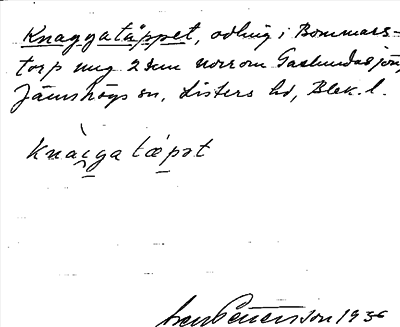 Knaggatäppet, odling i Bommars-
torp ung 2 km norrom
Jämshögs sn, Listers hd, Blek. l.
Knaggatæpət
Sven Petersson 1936